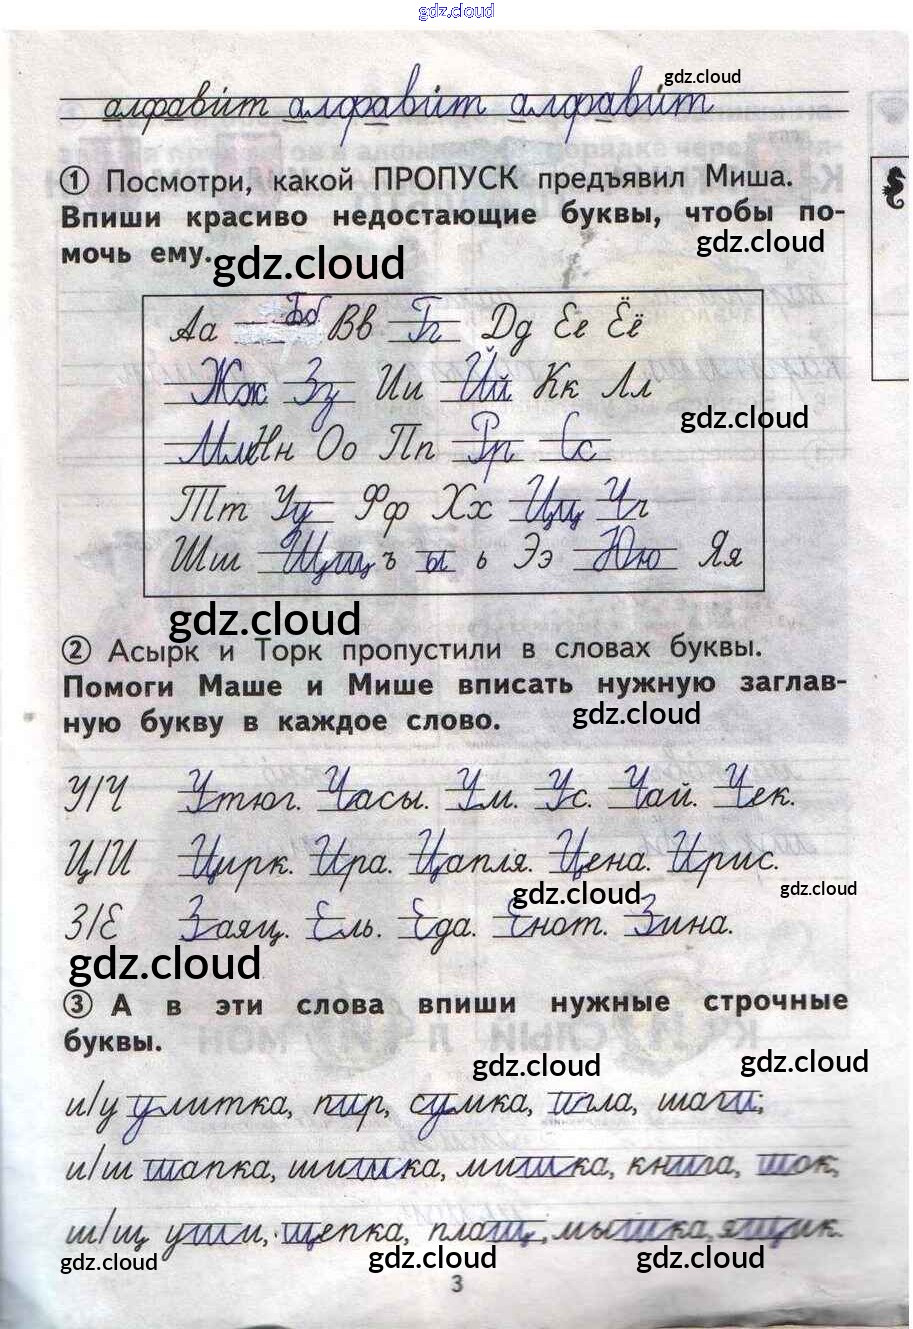 gdz.cloud
gdz.cloud
алфавит алфавит алфавит
① Посмотри, какой ПРОПУСК предъявил Миша.
Впиши красиво недостающие буквы, чтобы по-
мочь ему.
gdz.cloud
gdz.cloud
Аа Бб Вв Гг Дд Ее Ёё
Жж Зз Ии Йй Кк Лл
gdz.cloud
Мм Нн Оо Пп Рр Сс
Тт Уу Фф Хх Цц Чч
Шш Щщ ъ ы ь Ээ Юю Яя
gdz.cloud
② Асырк и Торк пропустили в словах буквы.
Помоги Маше и Мише вписать нужную заглав-
ную букву в каждое слово.
gdz.cloud
У/Ч Утюг. Часы. Ум. Ус. Чай. Чек.
Ц/И Цирк. Ира. Цапля. Цена. Ирис.
gdz.cloud
gdz.cloud
З/Е Заяц. Ель. Еда. Енот. Зина.
gdz.cloud
③ А в эти слова впиши нужные строчные
буквы.
gdz.cloud
gdz.cloud
и/у улитка, пир, сумка, игла, шаги;
и/ш шапка, шишка, мишка, книга, шок;
ш/щ уши, щепка, плащ, мышка, ящик.
gdz.cloud
gdz.cloud
gdz.cloud
3